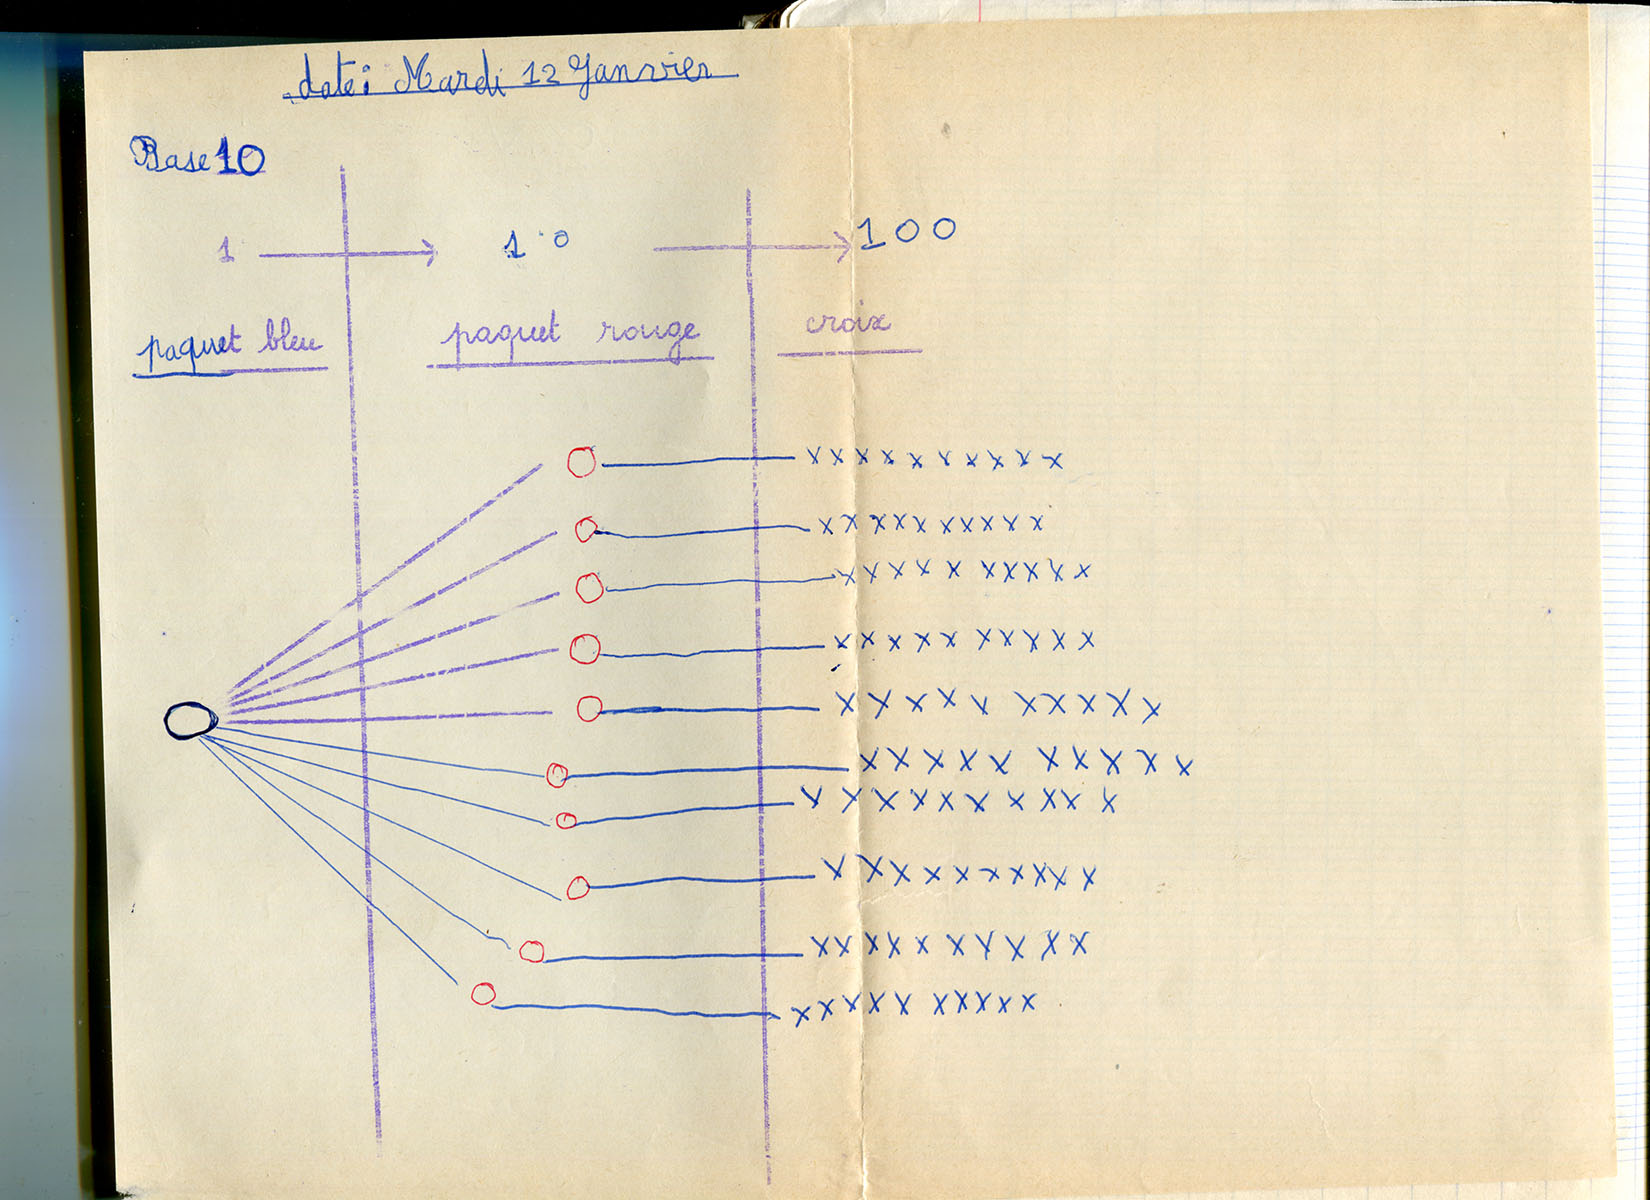 date: Mardi 12 Janvier
Base 10
1 → 10 → 100
paquet bleu paquet rouge croix
x x x x x x x x x x
x x x x x x x x x x
x x x x x x x x x x
x x x x x x x x x x
x x x x x x x x x x
x x x x x x x x x x
x x x x x x x x x x
x x x x x x x x x x
x x x x x x x x x x
x x x x x x x x x x